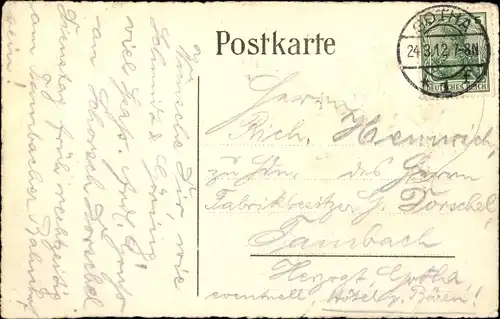 Postkarte
GOTHA
24.3.12.7-8N
DEUTSCHES REICH
5
Wünsche Dir, wie
Schmidt & Göring
viel
an Schorsch Dorschel
Dienstag früh rechtzeitig
am Tambacher Bahnhof
sein!
Herrn
Rich. Heinrich,
zu Hdn. des Herrn
Fabrikbesitzer G. Dorschel,
Tambach
Herzogt. Gotha,
eventuell, Hôtel z. Bären!